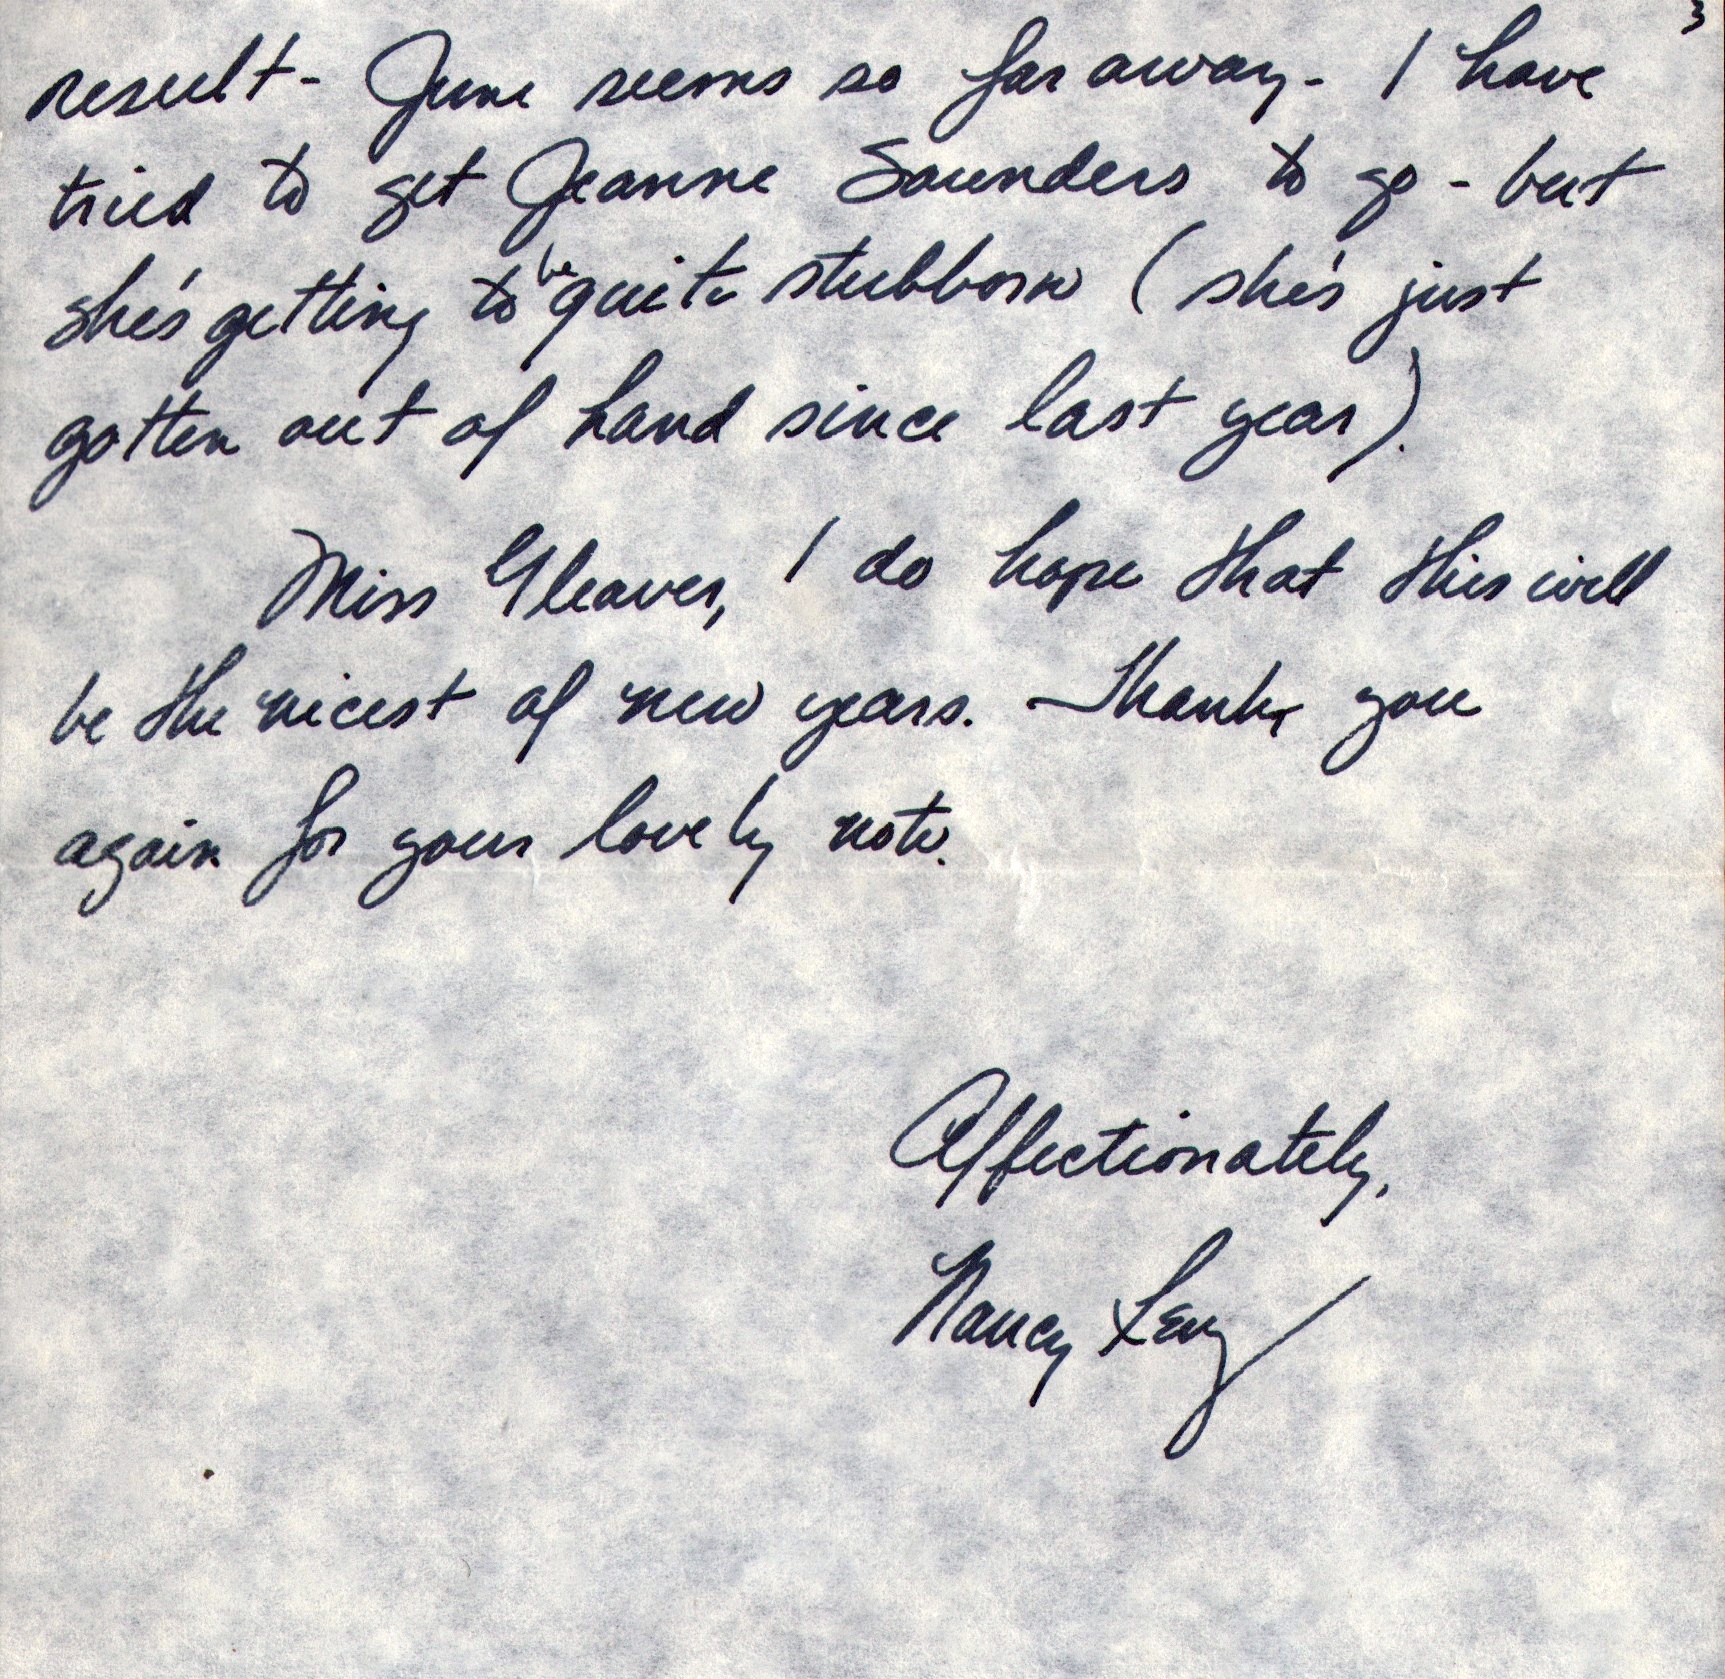 3
result - June seems so far away - I have
tried to get Jeanne Saunders to go - but
she's getting to be quite stubborn (she's just
gotten out of hand since last year).
Miss Gleaves, I do hope that this will
be the nicest of new years. Thank you
again for your lovely note.
Affectionately,
Nancy Levy